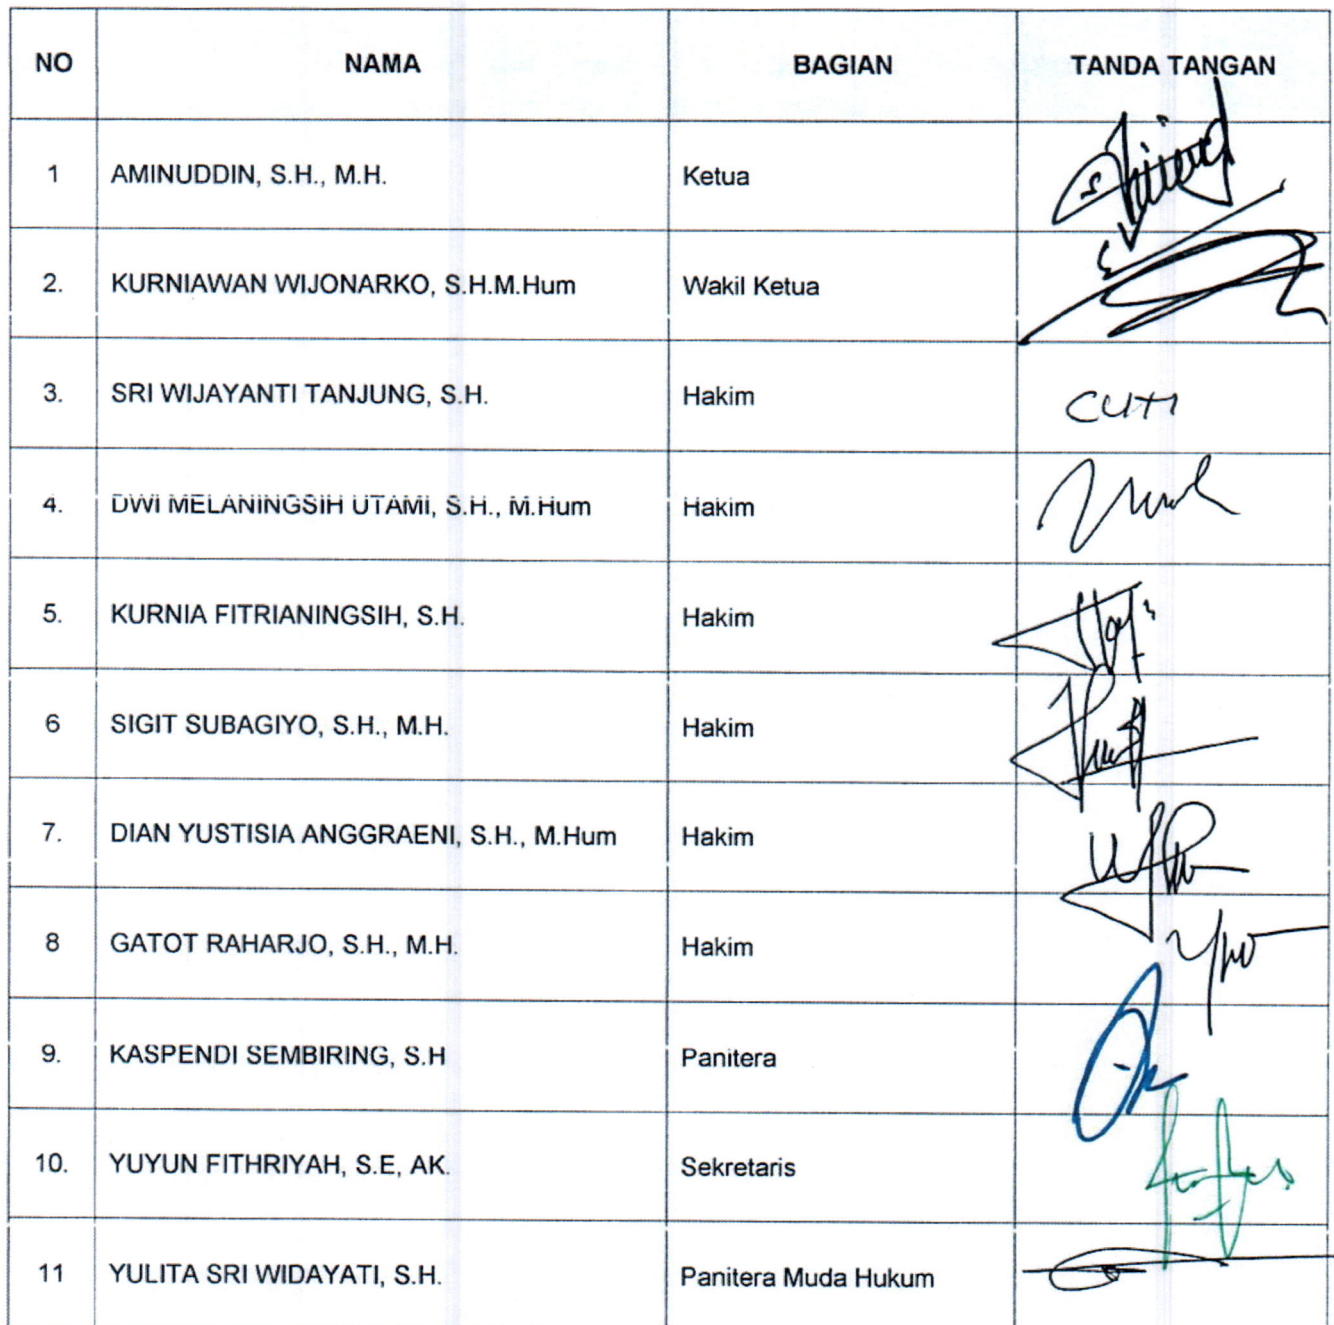 NO NAMA BAGIAN TANDA TANGAN
1 AMINUDDIN, S.H., M.H. Ketua
2. KURNIAWAN WIJONARKO, S.H.M.Hum Wakil Ketua
3. SRI WIJAYANTI TANJUNG, S.H. Hakim CUTI
4. DWI MELANINGSIH UTAMI, S.H., M.Hum Hakim
5. KURNIA FITRIANINGSIH, S.H. Hakim
6 SIGIT SUBAGIYO, S.H., M.H. Hakim
7. DIAN YUSTISIA ANGGRAENI, S.H., M.Hum Hakim
8 GATOT RAHARJO, S.H., M.H. Hakim
9. KASPENDI SEMBIRING, S.H Panitera
10. YUYUN FITHRIYAH, S.E, AK. Sekretaris
11 YULITA SRI WIDAYATI, S.H. Panitera Muda Hukum